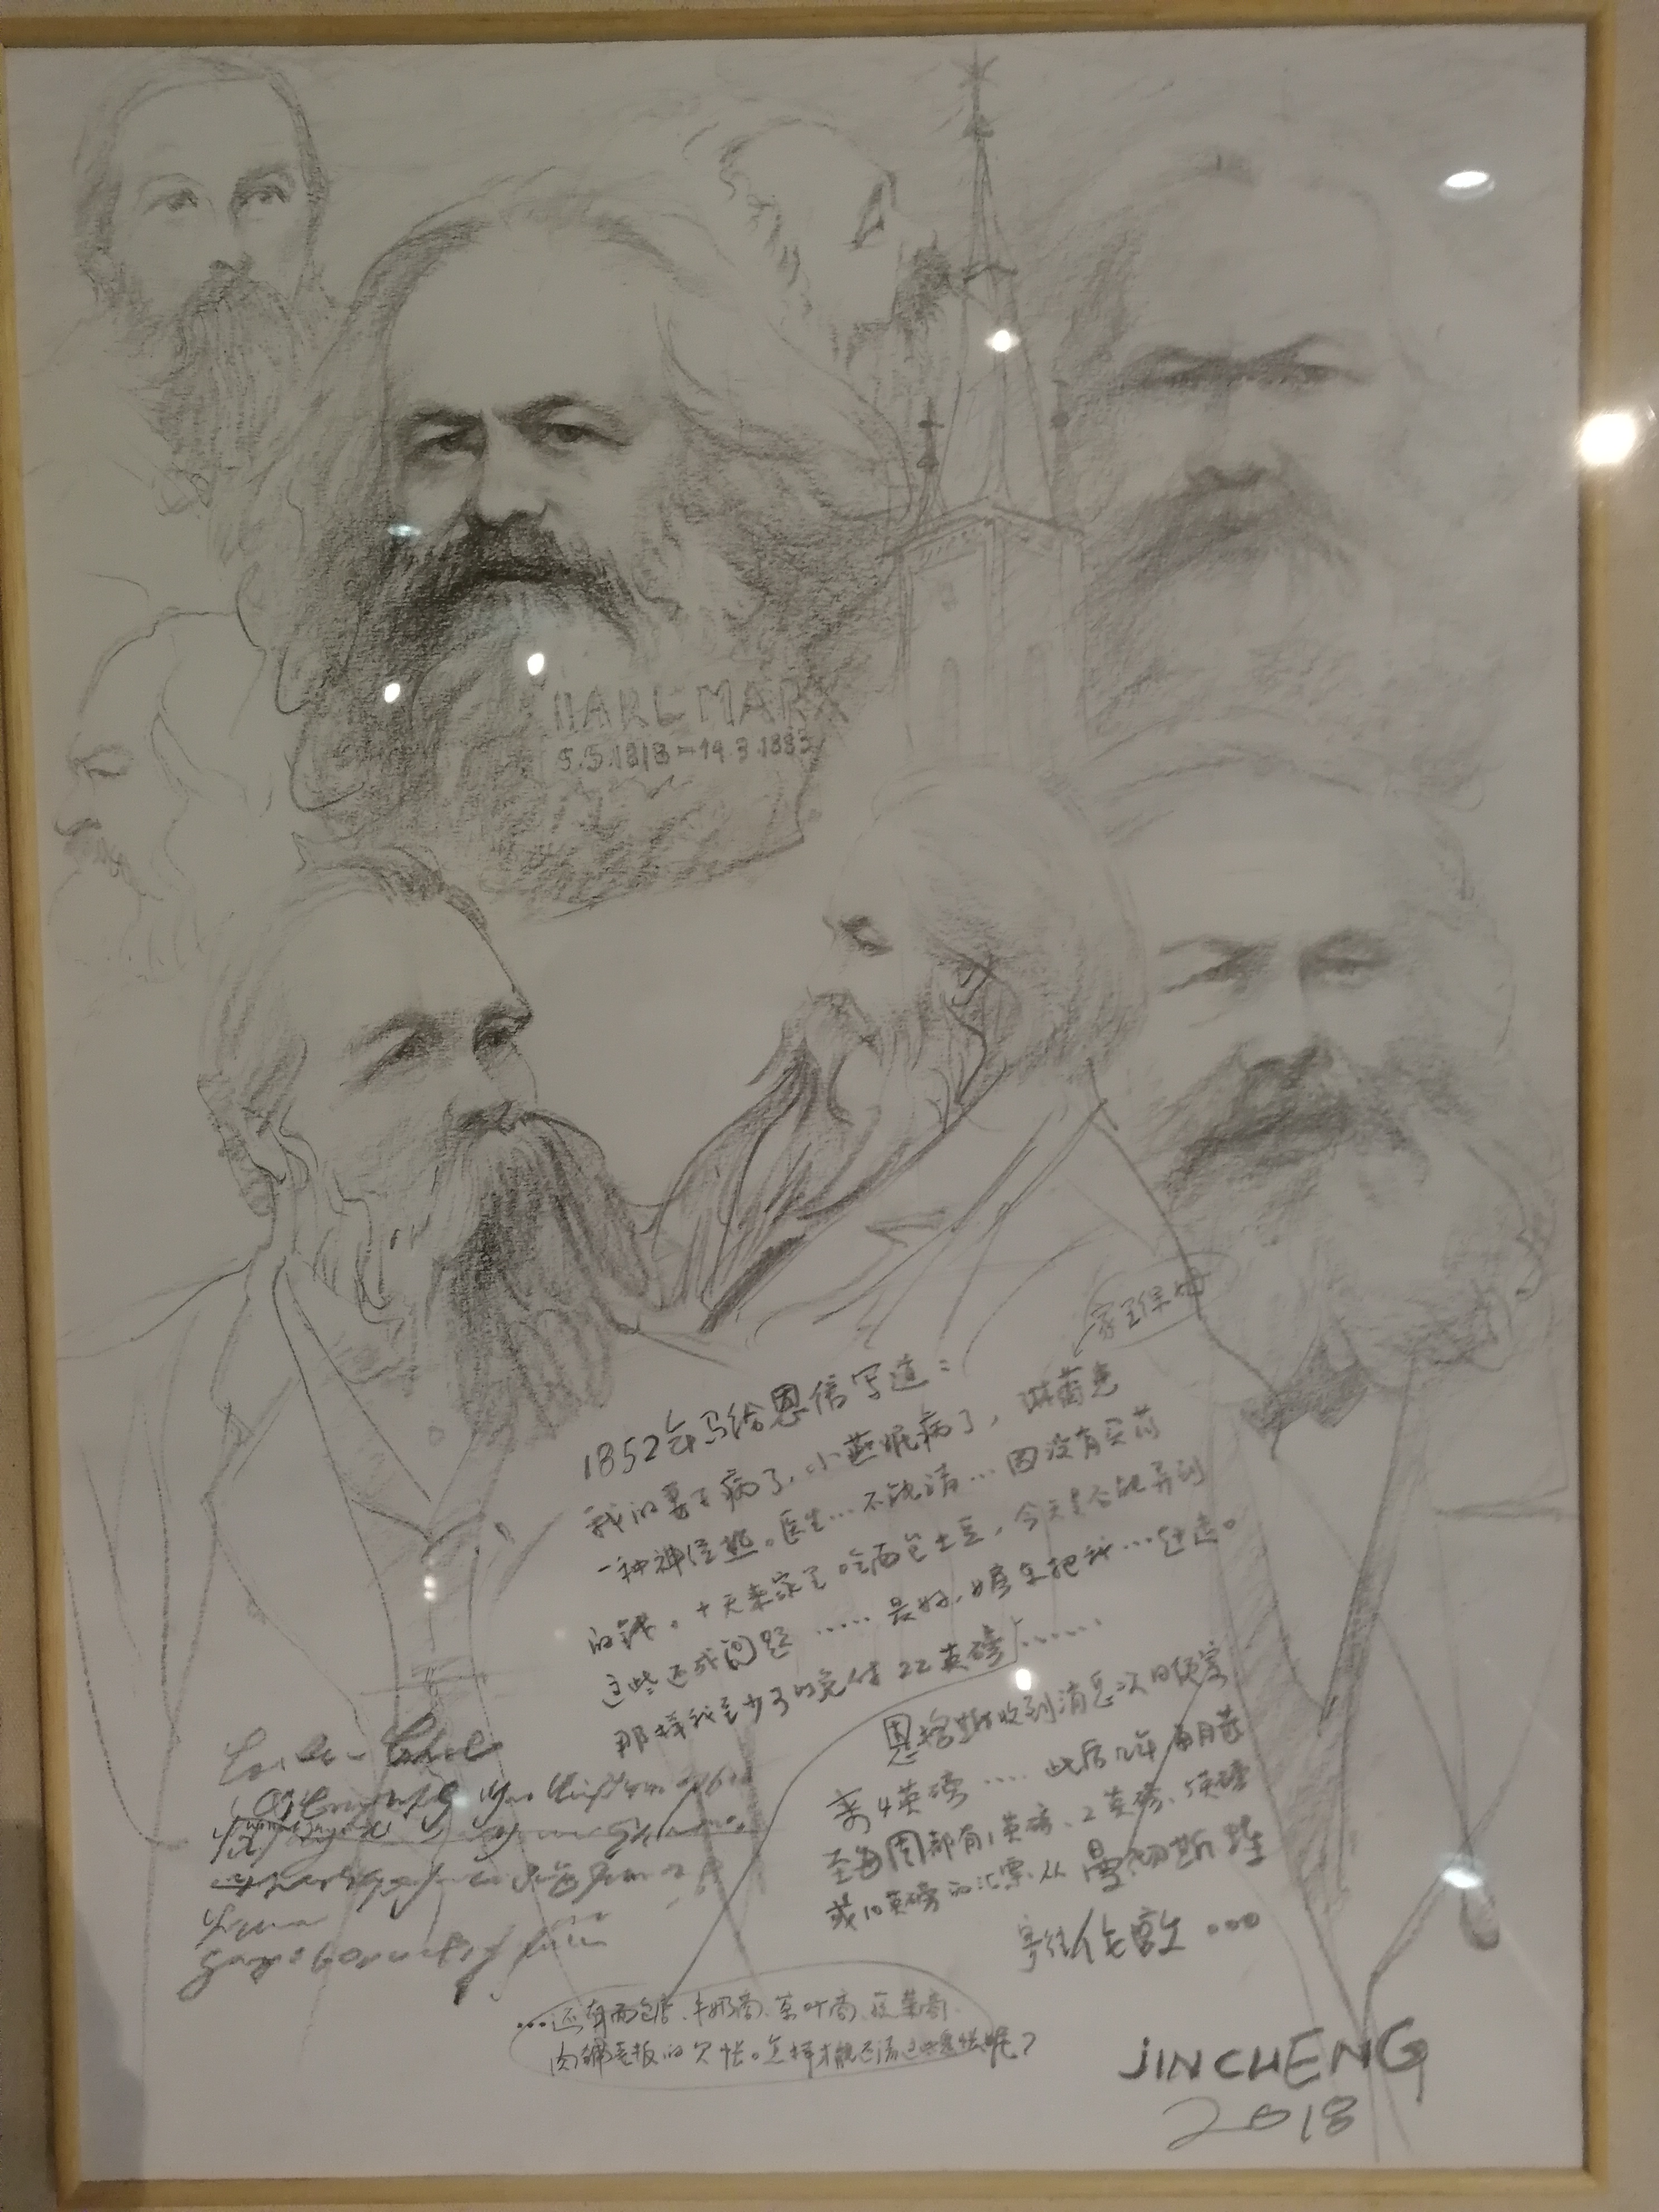 KARL MARX
5.5.1818-14.3.1883
家里保姆
1852年马给恩信写道：
我的妻子病了，小燕妮病了，琳蘅患
一种神经热。医生…不能请…因没有买药
的钱。十天来家里吃面包土豆，今天是否能弄到
这些还成问题……最好，房东把我…赶走。
那样我至少可以免付22英磅……
恩格斯收到消息次日便寄
来4英磅……此后几年每月甚
至每周都有1英磅、2英磅、5英磅
或10英磅的汇票从曼彻斯特
寄往伦敦…
…还有面包店、牛奶商、茶叶商、蔬菜商
肉铺老板的欠帐。怎样才能还清这些鬼帐呢？
JINCHENG
2018